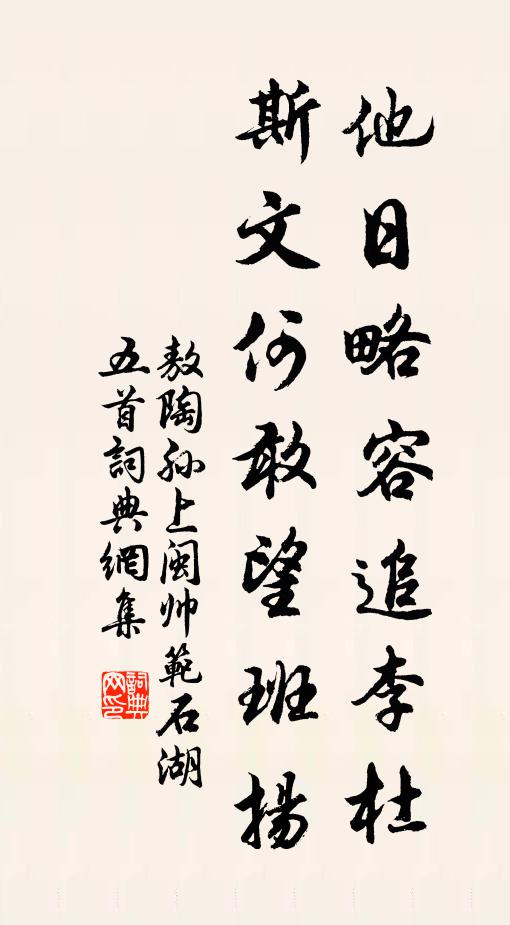 他日略容追李杜
斯文何敢望班揚
敖陶孙上闽帅範石湖
五首詞典網集
詞典网印